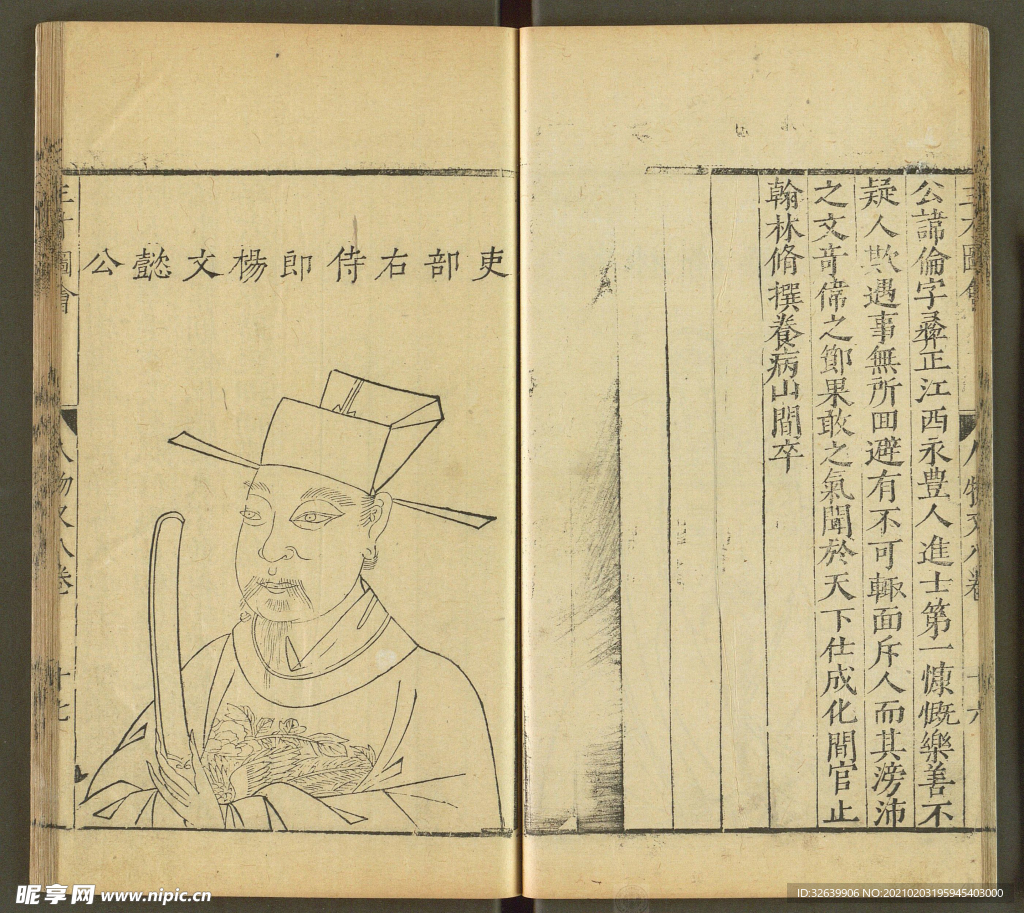 三才圖會
人物六卷
十六
公諱倫字彞正江西永豊人進士第一慷慨樂善不
疑人欺遇事無所回避有不可輙面斥人而其滂沛
之文竒偉之節果敢之氣聞於天下仕成化間官止
翰林脩撰養病山間卒
吏部右侍郎楊文懿公
圖會
人物
卷
十七
昵享网 www.nipic.cn
ID:32639906 NO:20210203195945403000